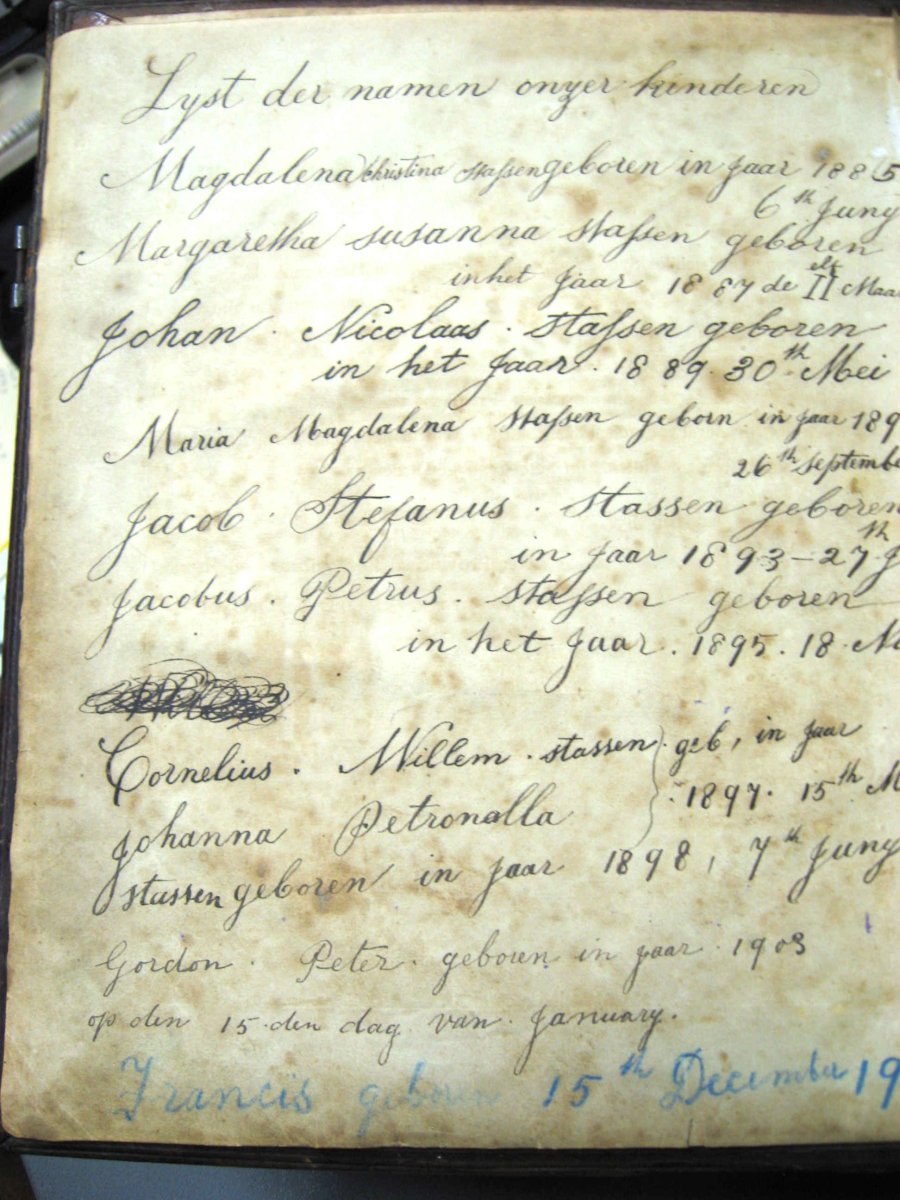 Lyst der namen onzer kinderen
Magdalena Christina Stassen geboren in jaar 1885
6th Juny
Margaretha susanna stassen geboren
in het Jaar 1887 de II elf Maar
Johan Nicolaas Stassen geboren
in het Jaar 1889 30th Mei
Maria Magdalena Stassen geborn in jaar 189
26th Septembe
Jacob Stefanus Stassen geboren
in Jaar 1893-27th J
Jacobus Petrus Stassen geboren
in het Jaar 1895 18 No
Cornelius Willem stassen geb, in jaar
1897 15th M
Johanna Petronalla
Stassen geboren in jaar 1898, 7th Juny
Gordon Peter geboren in jaar 1903
op den 15 den dag van January.
Francis geboren 15th December 19